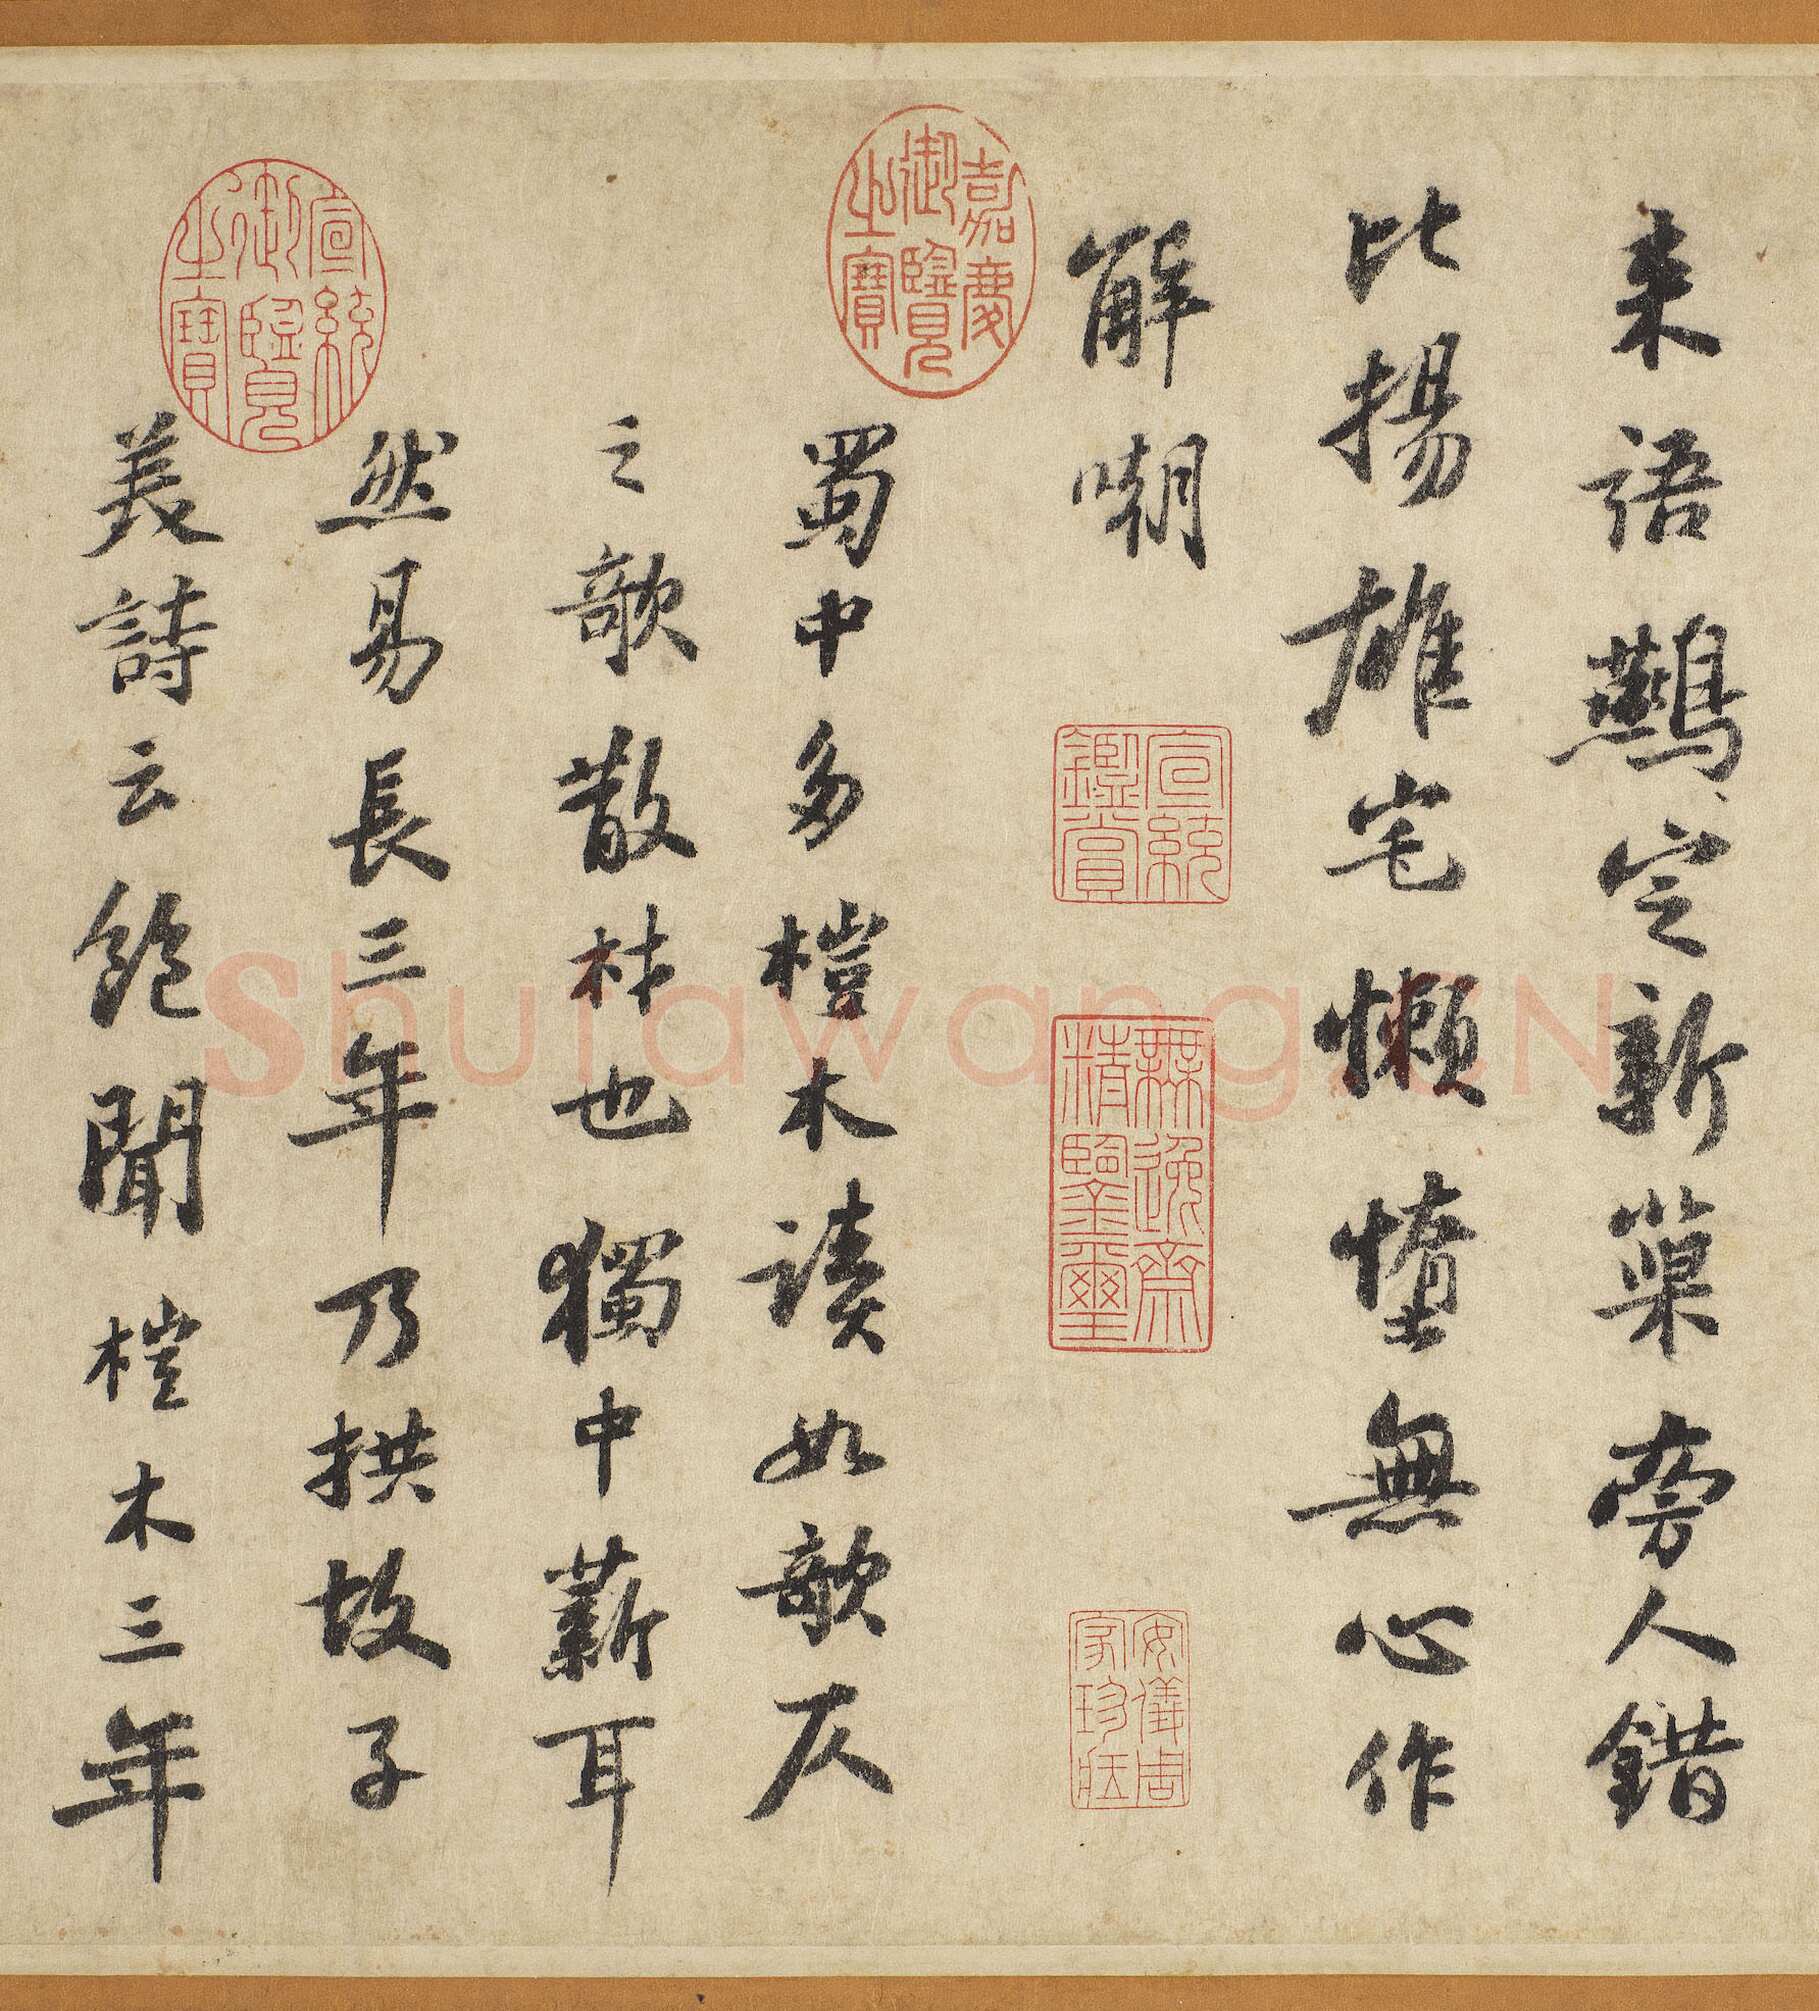 来語鷰定新巢旁人錯
比揚雄宅懶惰無心作
解嘲
宣統鑑賞
無逸齋精鑒璽
安儀周家珍藏
嘉慶御覽之寶
蜀中多榿木讀如欹仄
之欹散材也獨中薪耳
然易長三年乃拱故子
宣統御覽之寶
美詩云飽聞榿木三年
ShufawangCN